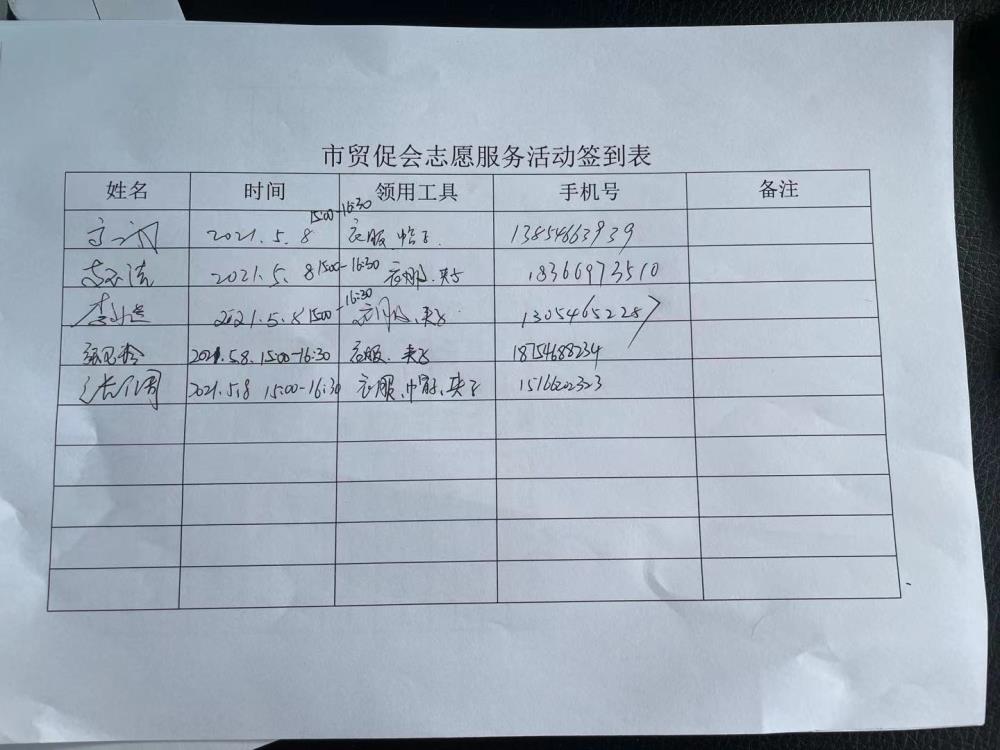 市贸促会志愿服务活动签到表
姓名 时间 领用工具 手机号 备注
2021.5.8 15:00-16:30 衣服 帽子 13854663939
2021.5.8 15:00-16:30 衣服、夹子 18366973510
2021.5.8 15:00-16:30 衣服、夹子 13054652287
2021.5.8. 15:00-16:30 衣服、夹子 18754688234
2021.5.8 15:00-16:30 衣服、帽子、夹子